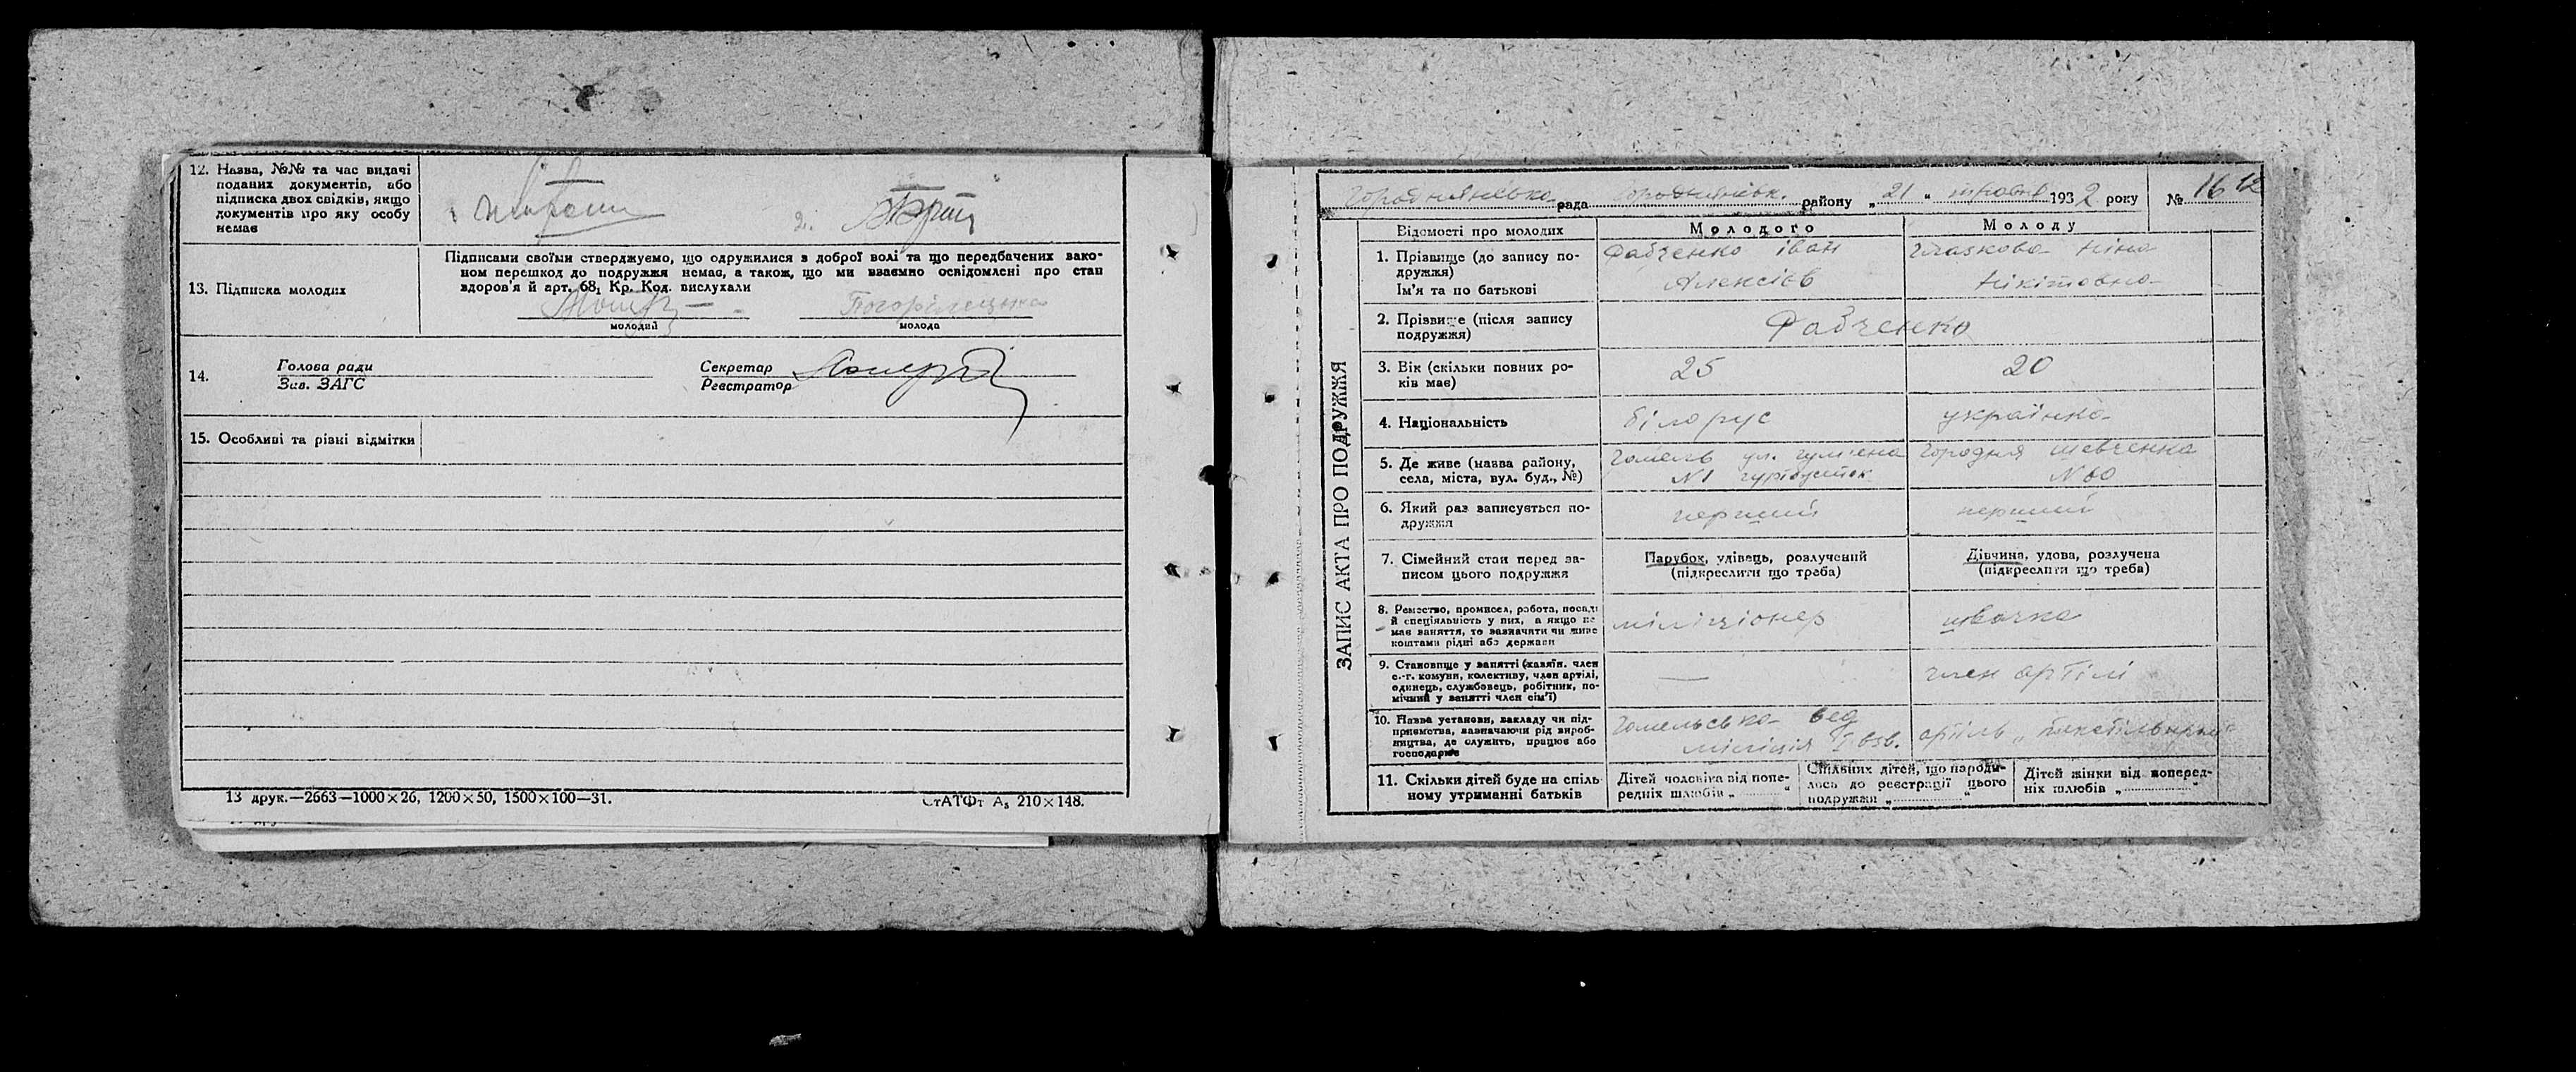 12. Назва, №№ та час видачі
поданих документів, або
підписка двох свідків, якщо
документів про яку особу
немає
2.
13. Підписка молодих
Підписами своїми стверджуємо, що одружилися з доброї волі та що передбачених зако-
ном перешкод до подружжя немає, а також, що ми взаємно освідомлені про стан
здоров'я й арт. 68, Кр. Код. вислухали
молодий
молода
14.
Голова ради
Зав. ЗАГС
Секретар
Реєстратор
15. Особливі та різні відмітки
13 друк.—2663—1000×26, 1200×50, 1500×100—31.
СтАТФт А₅ 210×148.
ЗАПИС АКТА ПРО ПОДРУЖЖЯ
Городнянська рада Городнянськ. району „21“ травня 1932 року № 16 12
Відомості про молодих
Молодого
Молоду
1. Прізвище (до запису по-
дружжя)
Ім'я та по батькові
Фабченко Іван
Алексієв
Глазкова Ніна
Нікітовна
2. Прізвище (після запису
подружжя)
Фабченко
3. Вік (скільки повних ро-
ків має)
25
20
4. Національність
білорус
українка
5. Де живе (назва району,
села, міста, вул. буд., №)
Гомель ул.
№1 гуртожиток
Городня Шевченка
№60
6. Який раз записується по-
дружжя
перший
перший
7. Сімейний стан перед за-
писом цього подружжя
Парубок, удівець, розлучений
(підкреслити що треба)
Дівчина, удова, розлучена
(підкреслити що треба)
8. Ремество, промисел, робота, посада
й спеціяльність у них, а якщо не
має заняття, то зазначити чи живе
коштами рідні або держави
міліціонер
швачка
9. Становище у занятті (хазяїн. член
с.-г. комуни, колективу, член артілі,
одинець, службовець, робітник, по-
мічний у занятті член сім'ї)
—
член артілі
10. Назва установи, закладу чи під-
приємства, зазначаючи рід вироб-
ництва, де служить, працює або
господарює
Гомельська вед
міліція І взв.
артіль „
11. Скільки дітей буде на спіль-
ному утриманні батьків
Дітей чоловіка від попе-
редніх шлюбів „ “
Спільних дітей, що народи-
лось до реєстрації цього
подружжя „ “
Дітей жінки від поперед-
ніх шлюбів „ “